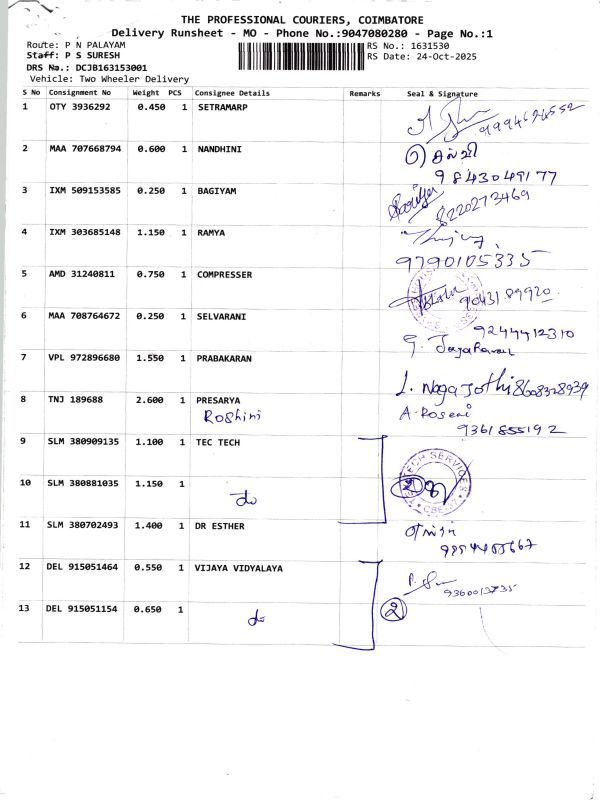 THE PROFESSIONAL COURIERS, COIMBATORE
Delivery Runsheet - MO - Phone No.:9047080280 - Page No.:1
Route: P N PALAYAM
RS No.: 1631530
Staff: P S SURESH
RS Date: 24-Oct-2025
DRS No.: DCJB163153001
Vehicle: Two Wheeler Delivery
S No Consignment No Weight PCS Consignee Details Remarks Seal & Signature
1 OTY 3936292 0.450 1 SETRAMARP
2 MAA 707668794 0.600 1 NANDHINI
9843049177
3 IXM 509153585 0.250 1 BAGIYAM
8220273469
4 IXM 303685148 1.150 1 RAMYA
9790105335
5 AMD 31240811 0.750 1 COMPRESSER
9043189920
6 MAA 708764672 0.250 1 SELVARANI
9244412310
7 VPL 972896680 1.550 1 PRABAKARAN
J. Nagajothi 8608328939
8 TNJ 189688 2.600 1 PRESARYA
Roshini
A. Roseni
9361855192
9 SLM 380909135 1.100 1 TEC TECH
TECH SERVICES
10 SLM 380881035 1.150 1
do
11 SLM 380702493 1.400 1 DR ESTHER
12 DEL 915051464 0.550 1 VIJAYA VIDYALAYA
9360013735
13 DEL 915051154 0.650 1
do
2